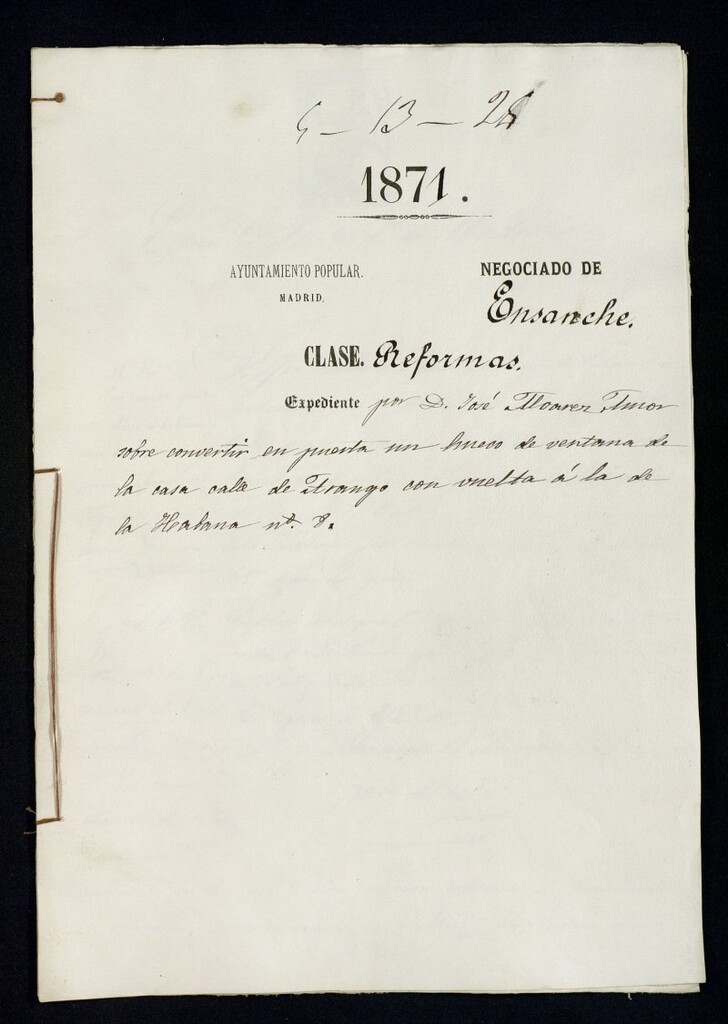 5 – 13 – 28
1871.
AYUNTAMIENTO POPULAR.
MADRID.
NEGOCIADO DE
Ensanche.
CLASE. Reformas.
Expediente por D. José Alvarez
sobre convertir en puerta un hueco de ventana de
la casa calle de con vuelta á la de
la Habana nº. 8.